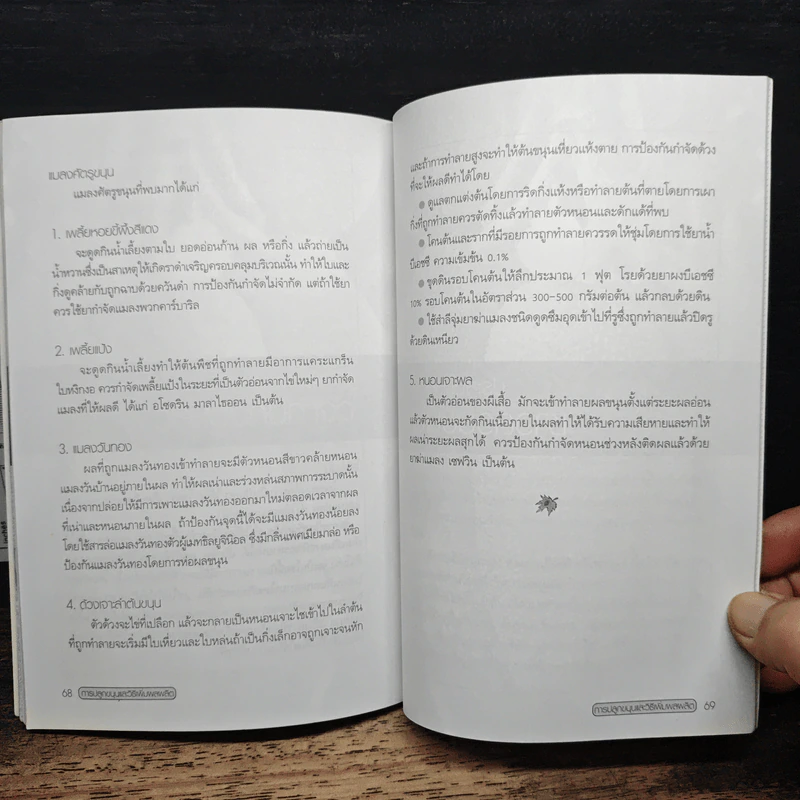 แมลงศัตรูขนุน
แมลงศัตรูขนุนที่พบมากได้แก่
1. เพลี้ยหอยขี้ผึ้งสีแดง
จะดูดกินน้ำเลี้ยงตามใบ ยอดอ่อนก้าน ผล หรือกิ่ง แล้วถ่ายเป็น
น้ำหวานซึ่งเป็นสาเหตุให้เกิดราดำเจริญครอบคลุมบริเวณนั้น ทำให้ใบและ
กิ่งดูคล้ายกับถูกฉาบด้วยควันดำ การป้องกันกำไม่จำกัด แต่ถ้าใช้ยา
ควรใช้ยากำจัดแมลงพวกคาร์บาริล
2. เพลี้ยแป้ง
จะดูดกินน้ำเลี้ยงทำให้ต้นพืชที่ถูกทำลายมีอาการแคระแกร็น
ใบหงิกงอ ควรกำจัดเพลี้ยแป้งในระยะที่เป็นตัวอ่อนจากไข่ใหม่ๆ ยากำจัด
แมลงที่ให้ผลดี ได้แก่ อโซดริน มาลาไธออน เป็นต้น
3. แมลงวันทอง
ผลที่ถูกแมลงวันทองเข้าทำลายจะมีตัวหนอนสีขาวคล้ายหนอน
แมลงวันบ้านอยู่ภายในผล ทำให้ผลเน่าและร่วงหล่นสภาพการระบาดนั้น
เนื่องจากปล่อยให้มีการเพาะแมลงวันทองออกมาใหม่ตลอดเวลาจากผล
ที่เน่าและหนอนภายในผล ถ้าป้องกันจุดนี้ได้จะมีแมลงวันทองน้อยลง
โดยใช้สารล่อแมลงวันทองตัวผู้เมทธิลยูจินอล ซึ่งมีกลิ่นเพศเมียมาล่อ หรือ
ป้องกันแมลงวันทองโดยการห่อผลขนุน
4. ด้วงเจาะลำต้นขนุน
ตัวด้วงจะไข่ที่เปลือก แล้วจะกลายเป็นหนอนเจาะไชเข้าไปในลำต้น
ที่ถูกทำลายจะเริ่มมีใบเหี่ยวและใบหล่นถ้าเป็นกิ่งเล็กอาจถูกเจาะจนหัก
68 การปลูกขนุนและวิธีเพิ่มผลผลิต
และถ้าการทำลายสูงจะทำให้ต้นขนุนเหี่ยวแห้งตาย การป้องกันกำจัดด้วง
ที่จะให้ผลดีทำได้โดย
● ดูแลตกแต่งต้นโดยการริดกิ่งแห้งหรือทำลายต้นที่ตายโดยการเผา
กิ่งที่ถูกทำลายควรตัดทิ้งแล้วทำลายตัวหนอนและดักแด้ที่พบ
● โคนต้นและรากที่มีรอยการถูกทำลายควรรดให้ชุ่มโดยการใช้ยาน้ำ
บีเอชซี ความเข้มข้น 0.1%
● ขุดดินรอบโคนต้นให้ลึกประมาณ 1 ฟุต โรยด้วยยาผงบีเอชซี
10% รอบโคนต้นในอัตราส่วน 300-500 กรัมต่อต้น แล้วกลบด้วยดิน
● ใช้สำลีจุ่มยาฆ่าแมลงชนิดดูดซึมอุดเข้าไปที่รูซึ่งถูกทำลายแล้วปิดรู
ด้วยดินเหนียว
5. หนอนเจาะผล
เป็นตัวอ่อนของผีเสื้อ มักจะเข้าทำลายผลขนุนตั้งแต่ระยะผลอ่อน
แล้วตัวหนอนจะกัดกินเนื้อภายในผลทำให้ได้รับความเสียหายและทำให้
ผลเน่าระยะผลสุกได้ ควรป้องกันกำจัดหนอนช่วงหลังติดผลแล้วด้วย
ยาฆ่าแมลง เซฟวิน เป็นต้น
การปลูกขนุนและวิธีเพิ่มผลผลิต 69